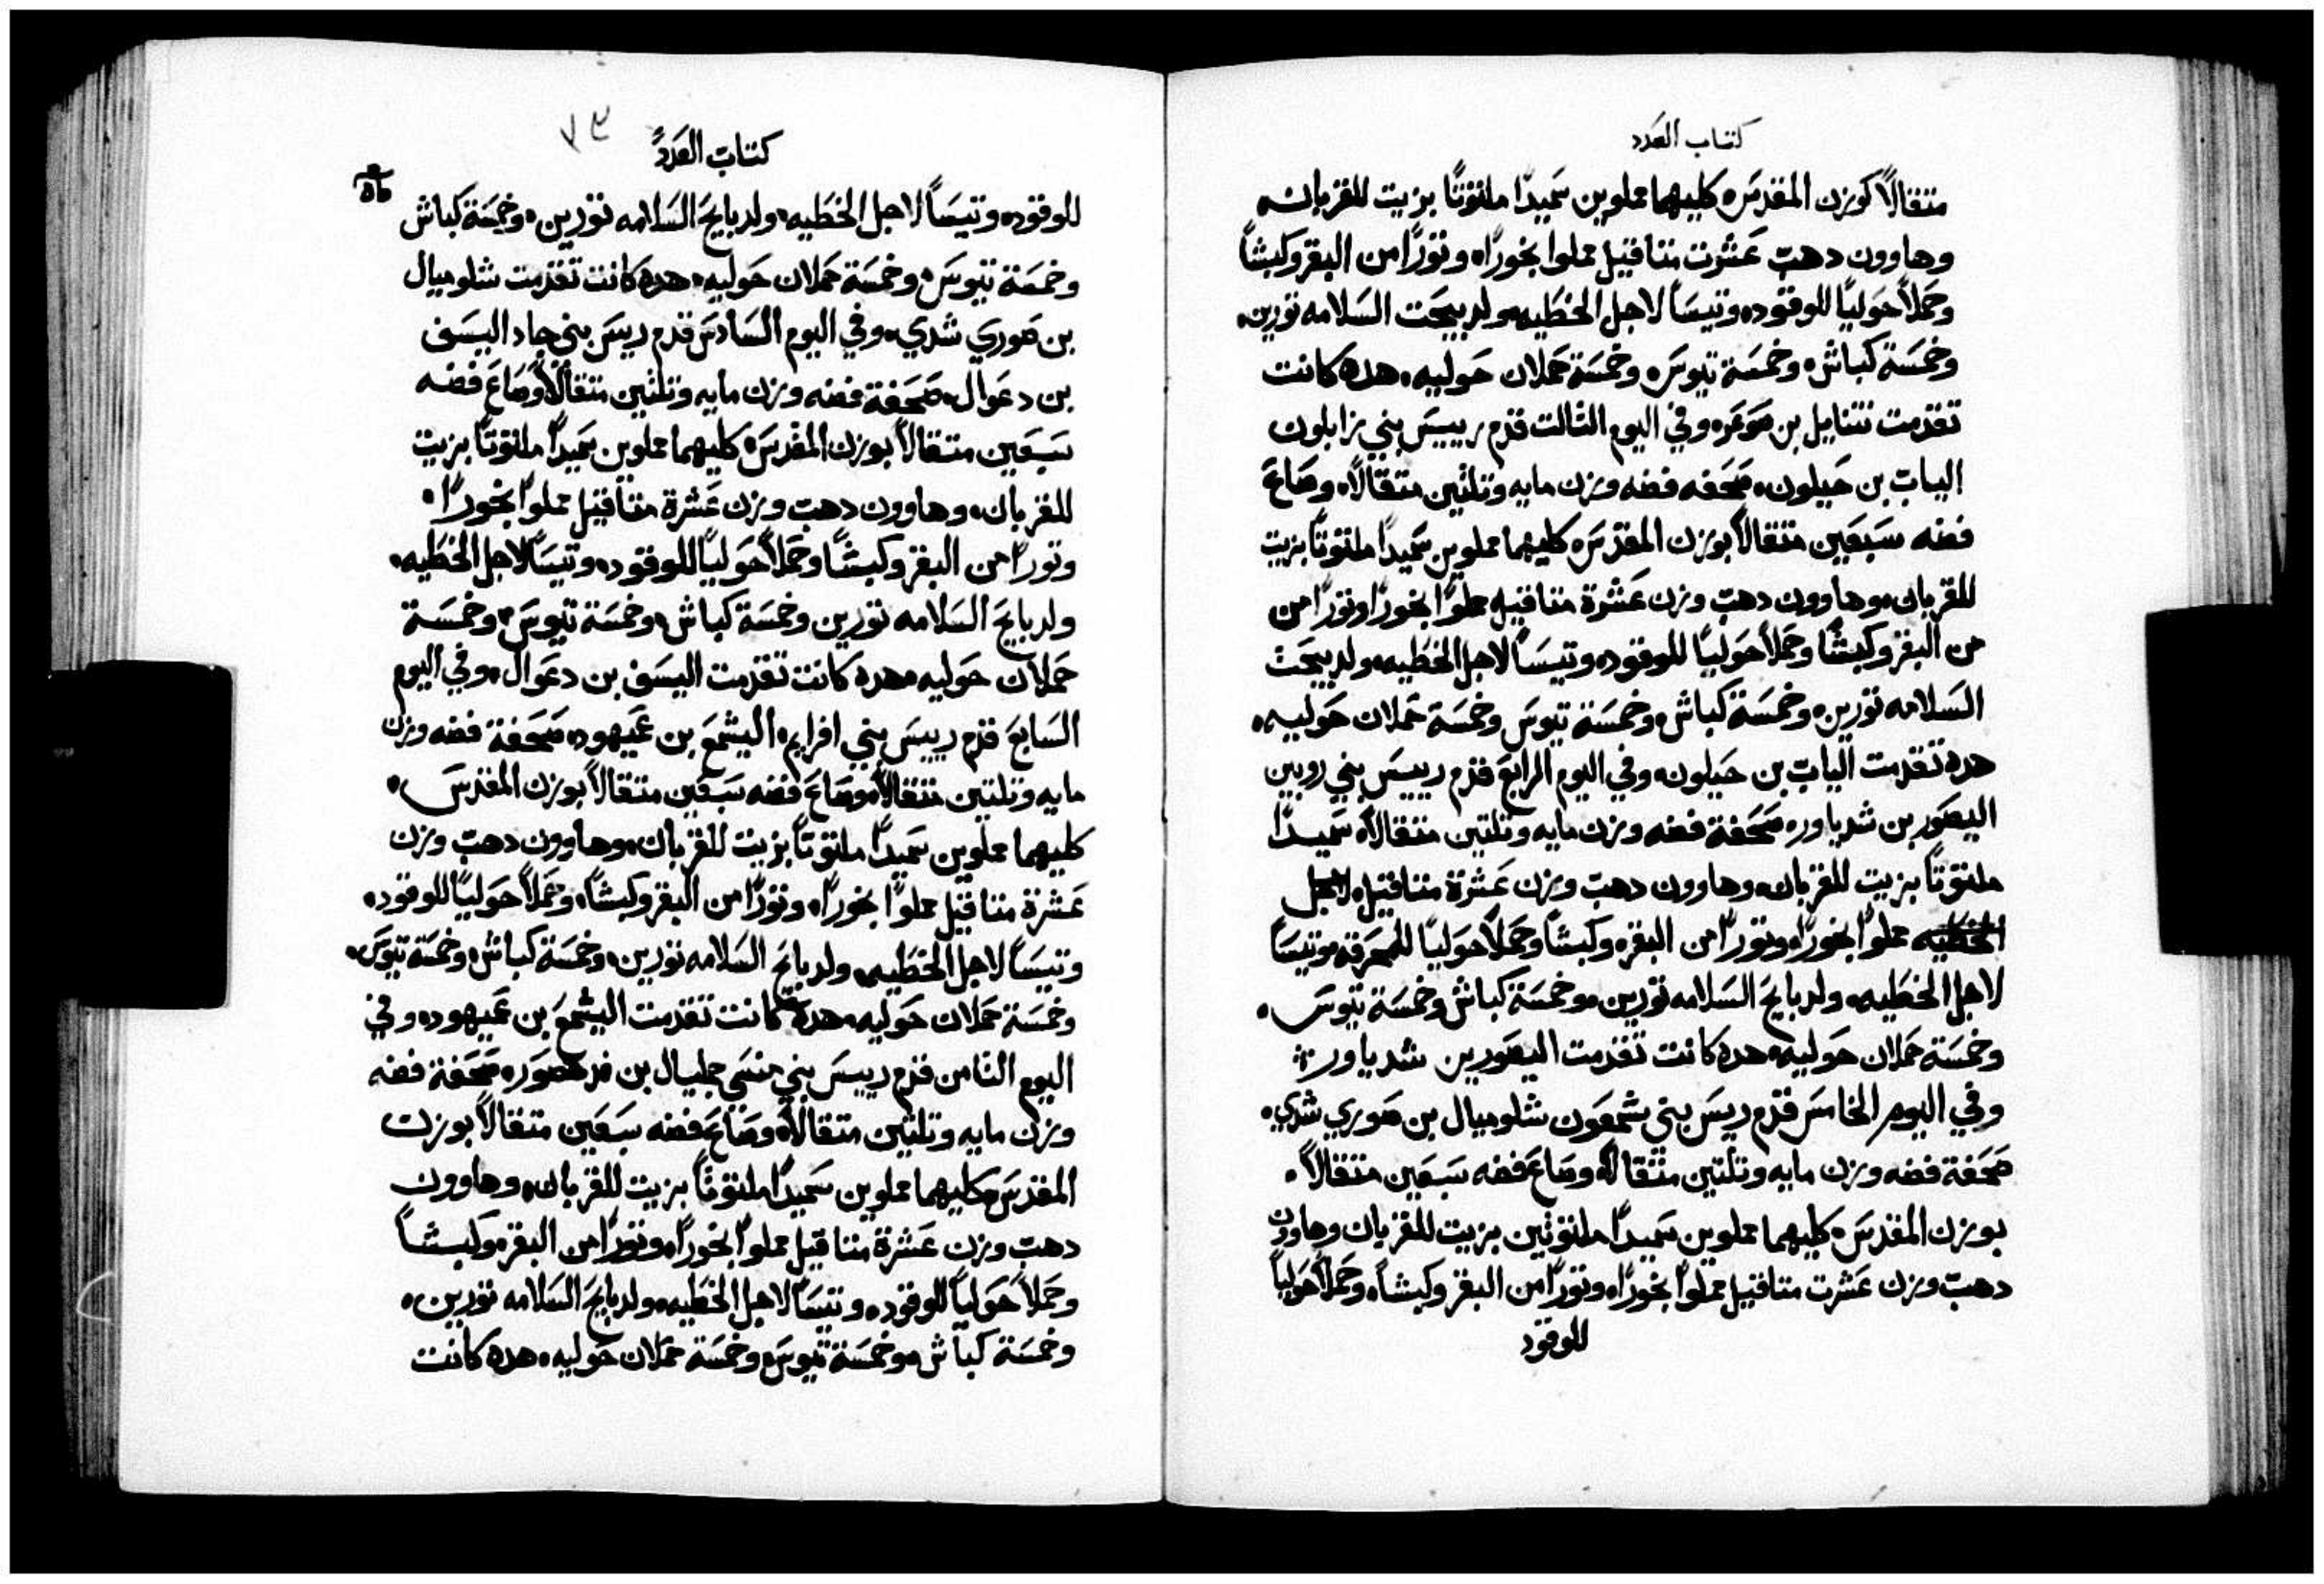 كتاب العدد
متقالاً كوزن المقدس كليهما مملوين سميدًا ملتوتًا بزيت للقربان
وهاوون دهب عشرت متاقيل مملوا بخورًا وتورًا من البقر وكبشًا
وحملاً حوليًا للوقود وتيسًا لاجل الخطيه ولدبيحت السلامه تورين
وخمسة كباش وخمسة تيوس وخمسة حملان حوليه هده كانت
تقدمت نتنايل بن صوعر وفي اليوم الثالت قدم رييس بني زابلون
الياب بن حيلون صحفه فضه وزن مايه وتلتين متقالاً وصاع
فضه سبعين متقالاً بوزن المقدس كليهما مملوين سميدًا ملتوتًا بزيت
للقربان وهاوون دهب وزن عشرة متاقيل مملوًا بخورًا وتورًا من
من البقر وكبشًا وحملاً حوليًا للوقود وتيسًا لاجل الخطيه ولدبيحت
السلامه تورين وخمسة كباش وخمسة تيوس وخمسة حملان حوليه
هده تقدمت الياب بن حيلون وفي اليوم الرابع قدم رييس بني روبين
اليصور بن شدياور صحفة فضه وزن مايه وتلتين متقالاً سميدًا
ملتوتًا بزيت للقربان وهاوون دهب وزن عشرة متاقيل لاجل
الخطيه مملوًا بخورًا وتورًا من البقر وكبشًا وحملاً حوليًا للمحرقه وتيسًا
لاجل الخطيه ولدبايح السلامه تورين وخمسة كباش وخمسة تيوس
وخمسة حملان حوليه هده كانت تقدمت اليصور بن شدياور
وفي اليوم الخامس قدم رييس بني شمعون شلوميال بن صوري شدي
صحفة فضه وزن مايه وتلتين متقالاً وصاع فضه سبعين متقالاً
بوزن المقدس كليهما مملوين سميدًا ملتوتين بزيت للقربان وهاوون
دهب وزن عشرت متاقيل مملوًا بخورًا وتورًا من البقر وكبشًا وحملاً حوليًا
للوقود
كتاب العدد ٧٣
للوقود وتيسًا لاجل الخطيه ولدبايح السلامه تورين وخمسة كباش
وخمسة تيوس وخمسة حملان حوليه هده كانت تقدمت شلوميال
بن صوري شدي وفي اليوم السادس قدم رييس بني جاد اليسف
بن دعوال صحفة فضه وزن مايه وتلتين متقالاً وصاع فضه
سبعين متقالاً بوزن المقدس كليهما مملوين سميدًا ملتوتًا بزيت
للقربان وهاوون دهب وزن عشرة متاقيل مملوًا بخورًا
وتورًا من البقر وكبشًا وحملاً حوليًا للوقود وتيسًا لاجل الخطيه
ولدبايح السلامه تورين وخمسة كباش وخمسة تيوس وخمسة
حملان حوليه هده كانت تقدمت اليسف بن دعوال وفي اليوم
السابع قدم رييس بني افرايم اليشمع بن عميهود صحفة فضه وزن
مايه وتلتين متقالاً وصاع فضه سبعين متقالاً بوزن المقدس
كليهما مملوين سميدًا ملتوتًا بزيت للقربان وهاوون دهب وزن
عشرة متاقيل مملوًا بخورًا وتورًا من البقر وكبشًا وحملاً حوليًا للوقود
وتيسًا لاجل الخطيه ولدبايح السلامه تورين وخمسة كباش وخمسة تيوس
وخمسة حملان حوليه هده كانت تقدمت اليشمع بن عميهود وفي
اليوم التامن قدم رييس بني منسي جمليال بن صحفة فضه
وزن مايه وتلتين متقالاً وصاع فضه سبعين متقالاً بوزن
المقدس كليهما مملوين سميدًا ملتوتًا بزيت للقربان وهاوون
دهب وزن عشرة متاقيل مملوًا بخورًا وتورًا من البقر وكبشًا
وحملاً حوليًا للوقود وتيسًا لاجل الخطيه ولدبايح السلامه تورين
وخمسة كباش وخمسة تيوس وخمسة حملان حوليه هده كانت